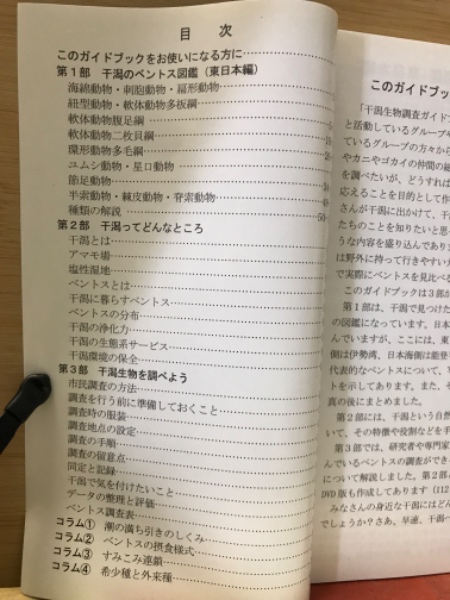 目 次
このガイドブックをお使いになる方に
第1部 干潟のベントス図鑑(東日本編)
海綿動物・刺胞動物・扁形動物
紐型動物・軟体動物多板綱
軟体動物腹足綱
軟体動物二枚貝綱
環形動物多毛綱
ユムシ動物・星口動物
節足動物
半索動物・棘皮動物・脊索動物
種類の解説 50
第2部 干潟ってどんなところ
干潟とは
アマモ場
塩性湿地
ベントスとは
干潟に暮らすベントス
ベントスの分布
干潟の浄化力
干潟の生態系サービス
干潟環境の保全
第3部 干潟生物を調べよう
市民調査の方法
調査を行う前に準備しておくこと
調査時の服装
調査地点の設定
調査の手順
調査の留意点
同定と記録
干潟で気を付けたいこと
データの整理と評価
ベントス調査表
コラム① 潮の満ち引きのしくみ
コラム② ベントスの摂食様式
コラム③ すみこみ連鎖
コラム④ 希少種と外来種
このガイドブッ
「干潟生物調査ガイドブ
と活動しているグループや
ているグループの方々から
やカニやゴカイの仲間の絵
を調べたいが、どうすれば
応えることを目的として作
さんが干潟に出かけて、干
たちのことを知りたいと思っ
うな内容を盛り込んであり
は野外に持って行きやすい
で実際にベントスを見比べる
このガイドブックは3部か
第1部は、干潟で見つけた
の図鑑になっています。日本
んでいますが、ここには、東
側は伊勢湾、日本海側は能登
代表的なベントスについて、写
トを示してあります。また、そ
真の後にまとめました。
第2部には、干潟という自然
いて、その特徴や役割などを手
第3部では、研究者や専門家
んでいるベントスの調査ができ
について解説しました。第2部と
DVD版も作成してあります(112
みなさんの身近な干潟にはどん
でしょうか?さあ、早速、干潟へ